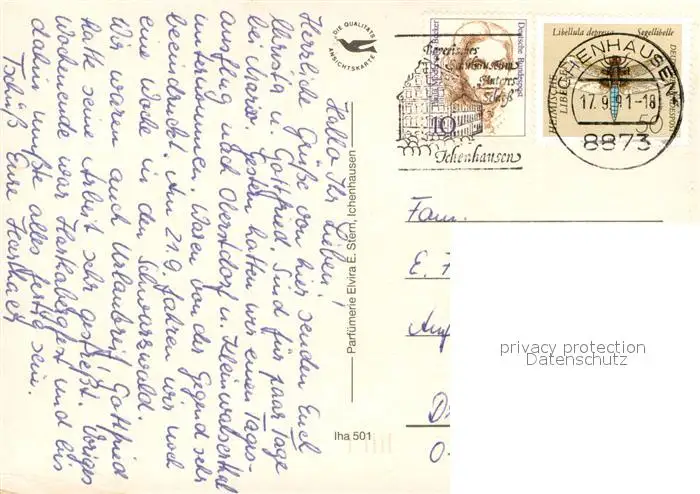 Hallo Ihr Lieben!
Herzliche Grüße von hier senden Euch
Christa u. Gottfried. Sind für paar Tage
bei Vera. Gestern hatten wir einen Tages-
ausflug nach Oberstdorf u. Kleinwalsertal
unternommen. Waren von der Gegend sehr
beeindruckt. Am 21.9. fahren wir noch
eine Woche in den Schwarzwald.
Wir waren auch Urlaubreif, Gottfried
hatte seine Arbeit sehr gestreßt. Voriges
Wochenende war und bis
dahin mußte alles fertig sein.
Tschüß Eure
DIE QUALITÄTS
ANSICHTSKARTE
Parfümerie Elvira E. Stern, Ichenhausen
Iha 501
Deutsche Bundespost
10
Libellula depressa Segellibelle
HEIMISCHE
LIBELLEN
50
Bayerisches
Schulmuseum
"Unteres
Schloß"
Ichenhausen
ICHENHAUSEN
17.9.91-18
8873
Fam.
E.
privacy protection
Datenschutz
O-